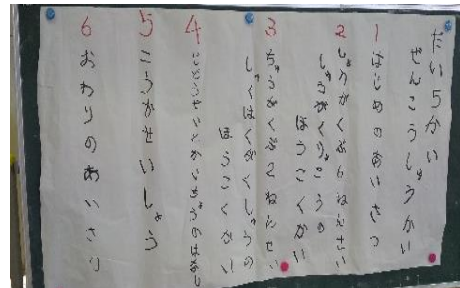 だい5かい
ぜんこうしゅうかい
1 はじめのあいさつ
2 しょうがくぶ6ねんせい
しゅうがくりょこうの
ほうこくかい
3 ちゅうがくぶ2ねんせい
しゅくはくがくしゅうの
ほうこくかい
4
5 こうかせいしょう
6 おわりのあいさつ